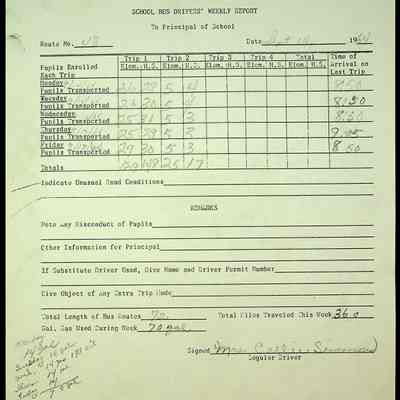 SCHOOL BUS DRIVERS' WEEKLY REPORT
To Principal of School
Route No. Date 19
Trip 1 Trip 2 Trip 3 Trip 4 Total Time of
Pupils Enrolled Elem. H.S. Elem. H.S. Elem. H.S. Elem. H.S. Elem. H.S. Arrival on
Each Trip Last Trip
Monday
Pupils Transported 29 5 4 8:50
Tuesday
Pupils Transported 30 5 4 8:50
Wednesday
Pupils Transported 25 31 5 3 8:50
Thursday
Pupils Transported 25 29 5 3 9:05
Friday
Pupils Transported 29 30 5 3 8:50
Totals 25 17
Indicate Unusual Road Conditions
REMARKS
Note Any Misconduct of Pupils
Other Information for Principal
If Substitute Driver Used, Give Name and Driver Permit Number
Give Object of Any Extra Trip Made
Total Length of Bus Routes 72 Total Miles Traveled This Week 360
Gal. Gas Used During Week 70 gal
Signed Mrs.
Regular Driver